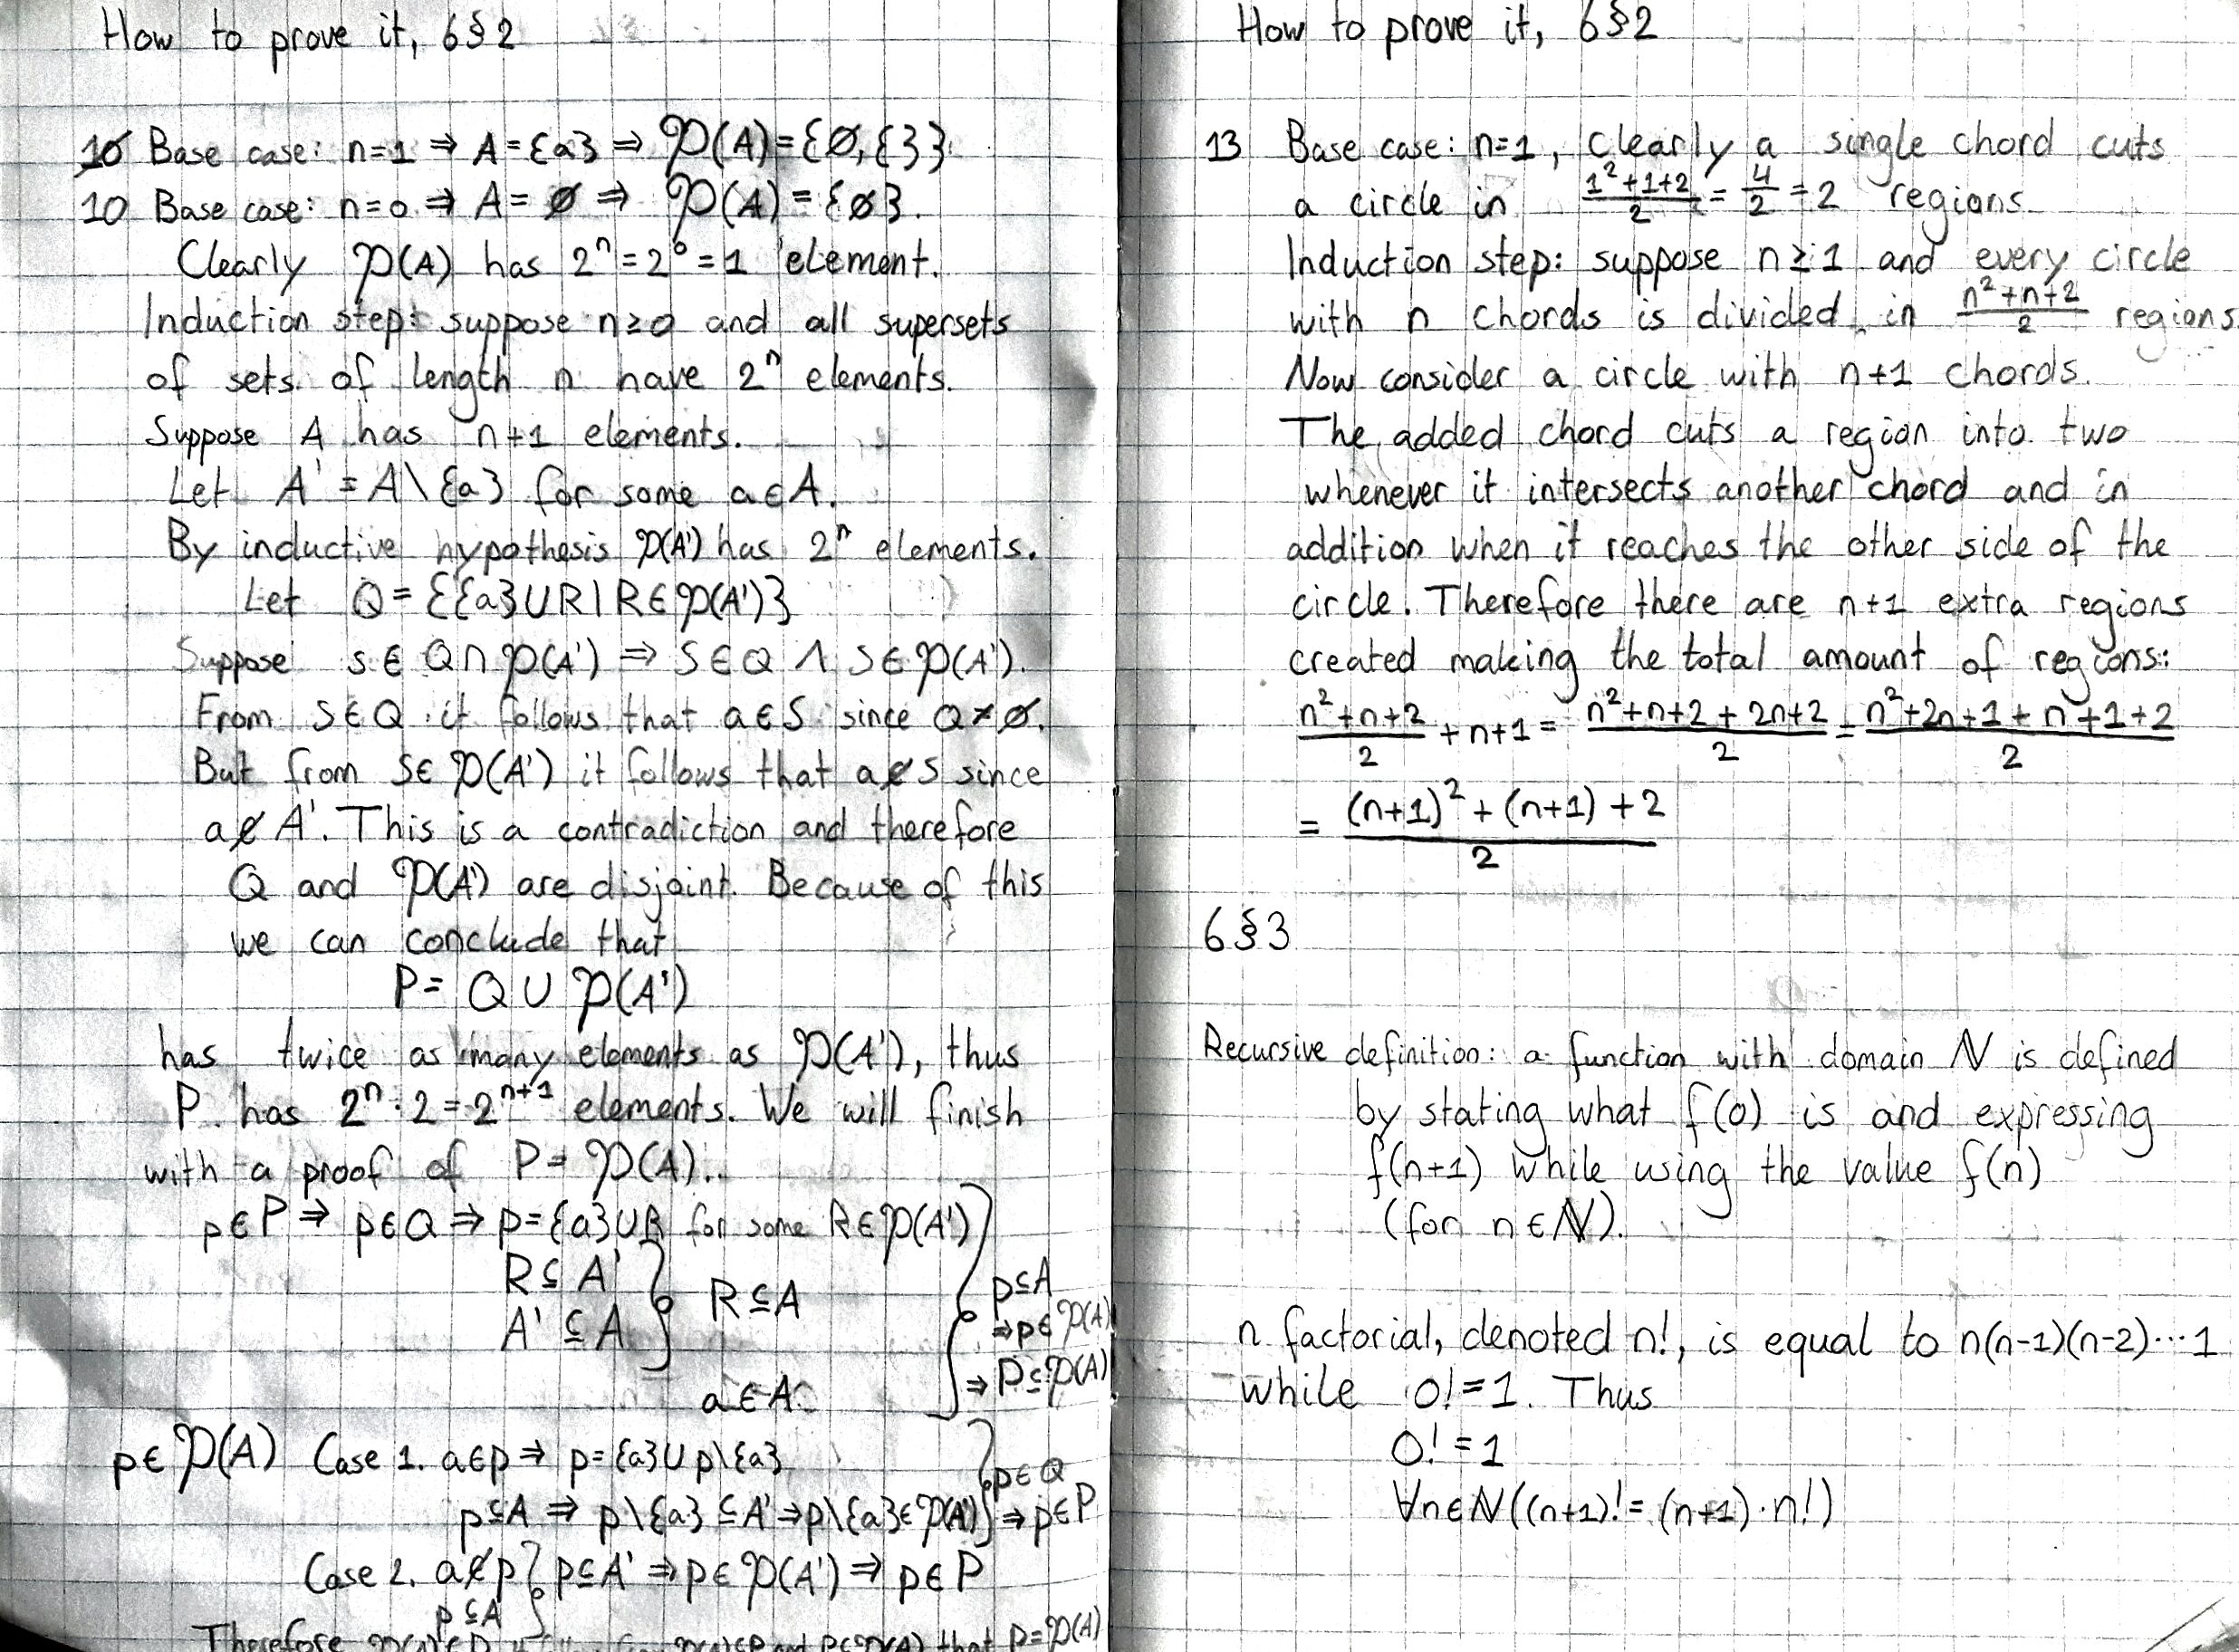 How to prove it, 6§2
10 Base case: n=1 ⇒ A={a} ⇒ 𝒫(A)={∅,{}}
10 Base case: n=0 ⇒ A=∅ ⇒ 𝒫(A)={∅}.
Clearly 𝒫(A) has 2ⁿ=2⁰=1 element.
Induction step: suppose n≥0 and all supersets
of sets of length n have 2ⁿ elements.
Suppose A has n+1 elements.
Let A'=A\{a} for some a∈A.
By inductive hypothesis 𝒫(A') has 2ⁿ elements.
Let Q={{a}∪R|R∈𝒫(A')}
Suppose S∈Q∩𝒫(A') ⇒ S∈Q ∧ S∈𝒫(A').
From S∈Q it follows that a∈S since Q≠∅.
But from S∈𝒫(A') it follows that a∉S since
a∉A'. This is a contradiction and therefore
Q and 𝒫(A') are disjoint. Because of this
we can conclude that
P=Q∪𝒫(A')
has twice as many elements as 𝒫(A'), thus
P has 2ⁿ·2=2ⁿ⁺¹ elements. We will finish
with a proof of P=𝒫(A).
p∈P ⇒ p∈Q ⇒ p={a}∪R for some R∈𝒫(A')
R⊆A'
A'⊆A
R⊆A
a∈A
p⊆A
⇒p∈𝒫(A)
⇒P⊆𝒫(A)
p∈𝒫(A) Case 1. a∈p ⇒ p={a}∪p\{a}
p⊆A ⇒ p\{a}⊆A' ⇒ p\{a}∈𝒫(A')
p∈Q
⇒p∈P
Case 2. a∉p
p⊆A
p⊆A' ⇒ p∈𝒫(A') ⇒ p∈P
Therefore 𝒫(A)⊆P 𝒫(A)⊆P and P⊆𝒫(A) that P=𝒫(A)
How to prove it, 6§2
13 Base case: n=1, Clearly a single chord cuts
a circle in (1²+1+2)/2 = 4/2 = 2 regions.
Induction step: suppose n≥1 and every circle
with n chords is divided in (n²+n+2)/2 regions.
Now consider a circle with n+1 chords.
The added chord cuts a region into two
whenever it intersects another chord and in
addition when it reaches the other side of the
circle. Therefore there are n+1 extra regions
created making the total amount of regions:
(n²+n+2)/2 + n+1 = (n²+n+2+2n+2)/2 = (n²+2n+1+n+1+2)/2
= ((n+1)²+(n+1)+2)/2
6§3
Recursive definition: a function with domain ℕ is defined
by stating what f(0) is and expressing
f(n+1) while using the value f(n)
(for n∈ℕ).
n factorial, denoted n!, is equal to n(n-1)(n-2)···1
while 0!=1. Thus
0!=1
∀n∈ℕ((n+1)!=(n+1)·n!)